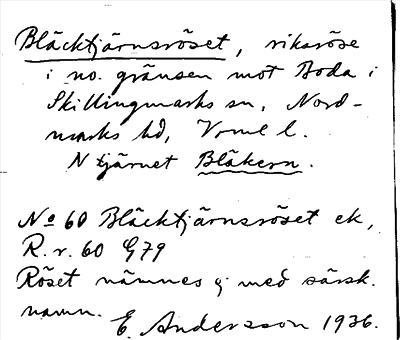 Bläcktjärnsröset, riksröse
i no. gränsen mot Boda i
Skillingmarks sn, Nord-
marks hd, Vrml l.
N tjärnet Bläkern.
No 60 Bläcktjärnsröset ek,
R.r. 60 G79
Röset nämnes ej med särsk.
namn.
E. Andersson 1936.